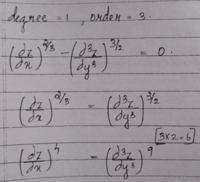 degree = 1, order = 3.
(∂z/∂x)^2/3 − (∂³z/∂y³)^3/2 = 0.
(∂z/∂x)^2/3 = (∂³z/∂y³)^3/2
[3×2=6]
(∂z/∂x)^4 = (∂³z/∂y³)^9